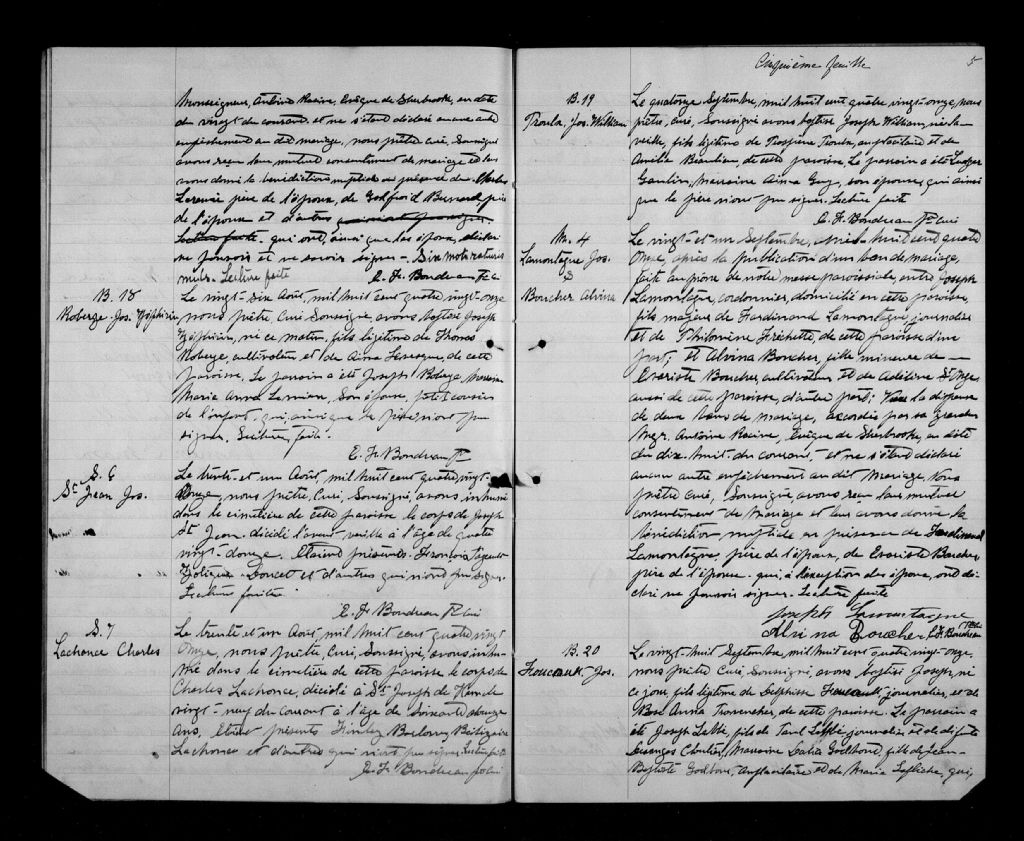 Monseigneur, Antoine Racine, Evêque de Sherbrooke, en date
du vingt du courant et ne s'étant déclaré aucun autre
empêchement au dit mariage, nous prêtre, curé, Soussigné
avons reçu leur mutuel consentement de mariage et leur
avons donné la bénédiction nuptiale en présence de Charles
père de l'époux, de Godfroid Bernard père
de l'épouse et d'autres
Lecture faite - qui ont, ainsi que les époux, déclaré
ne pouvoir et ne savoir signer - Six mots raturés
nuls - Lecture faite
E. H. Bondreau Ptre
B. 18
Roberge Jos. Zéphirin
Le vingt-six Août, mil huit cent quatre vingt-onze
nous prêtre, Curé Soussigné, avons baptisé Joseph
Zéphirin, né ce matin, fils légitime de Thomas
Roberge, cultivateur et de de cette
paroisse. Le parrain a été Joseph Roberge Marraine
Marie Anna Lemieux, son épouse, petit cousin
de l'enfant, qui, ainsi que le père n'ont pu
signer. Lecture faite.
E. H. Bondreau Ptre
S. 6
St Jean Jos.
Le trente-et un Août, mil huit cent quatre vingt-
Onze, nous prêtre, Curé, Soussigné, avons inhumé
dans le cimetière de cette paroisse le corps de Joseph
St Jean décédé l'avant veille à l'âge de quatre
vingt-douze. Etaient présents François
Doucet et d'autres qui n'ont pu signer.
Lecture faite
E. H. Bondreau Ptre Curé
S. 7
Lachance Charles
Le trente et un Août, mil huit cent quatre vingt
Onze, nous prêtre, Curé, Soussigné, avons inhu-
mé dans le cimetière de cette paroisse le corps de
Charles Lachance, décédé à St Joseph de Ham le
vingt-neuf du courant à l'âge de soixante douze
ans, Etaient présents
Lachance et d'autres qui n'ont pu signer Lecture faite
E. H. Bondreau ptre Curé
Cinquième feuille
5
B. 19
Jos. William
Le quatorze Septembre, mil huit cent quatre vingt-onze, nous
prêtre, curé, Soussigné avons baptisé Joseph William, né la
veille, fils légitime de et de
Amélie Beaulieu, de cette paroisse. Le parrain a été Ludger
Marraine son épouse, qui ainsi
que le père n'ont pu signer. Lecture faite
E. H. Bondreau Ptre Curé
M. 4
Lamontagne Jos.
&
Boucher Alvina
Le vingt-et un Septembre, mil huit cent quatre
Onze, après la publication d'un ban de mariage,
faite au prône de notre messe paroissiale, entre Joseph
Lamontagne, cordonnier, domicilié en cette paroisse,
fils majeur de Ferdinand Lamontagne, journalier
et de Philomène Fréchette, de cette paroisse d'une
part; et Alvina Boucher, fille mineure de
Evariste Boucher, cultivateur et de Adéline St Onge
aussi de cette paroisse, d'autre part; Vu la dispense
de deux bans de mariage, accordée par sa grandeur
Mgr. Antoine Racine, Evêque de Sherbrooke, en date
du dix-huit du courant, et ne s'étant déclaré
aucun autre empêchement au dit Mariage, Nous
prêtre curé, Soussigné, avons reçu leur mutuel
consentement de Mariage et leur avons donné la
bénédiction nuptiale en présence de Ferdinand
Lamontagne, père de l'époux, de Evariste Boucher
père de l'épouse qui, à l'exception des époux, ont dé-
claré ne pouvoir signer. Lecture faite
Joseph Lamontagne
Alvina Boucher E. H. Bondreau Ptre
B. 20
Foucault Jos.
Le vingt-huit Septembre, mil huit cent quatre vingt-onze,
nous prêtre Curé Soussigné, avons baptisé Joseph, né
ce jour, fils légitime de Delphisse Foucault, journalier, et de
Rose Anna de cette paroisse. Le parrain a
été Joseph fils de Paul journalier et de défunte
Cloutier, Marraine Godbout, fille de Jean-
Baptiste Godbout, et de Marie qui,